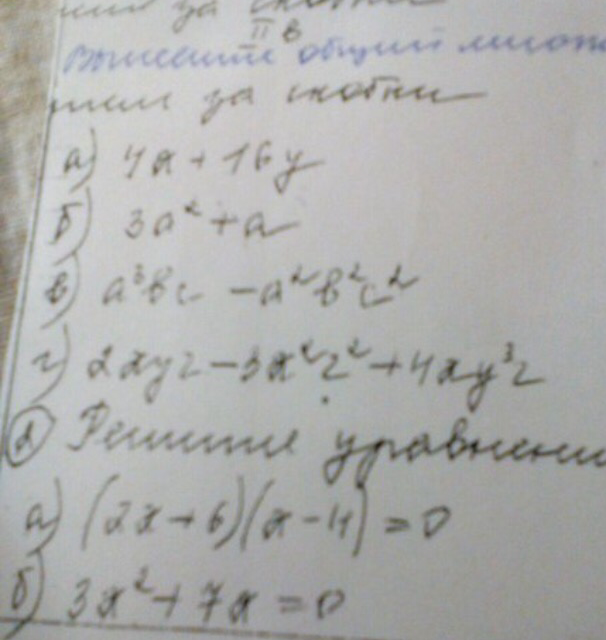 за скобки
II в
Вынесите общий множи
тели за скобки
а) 4x + 16y
б) 3a² + a
в) a³bc - a²b²c²
г) 2xyz - 3x²z² + 4xy³z
② Решите уравнени
а) (2x + 6)(x - 4) = 0
б) 3x² + 7x = 0